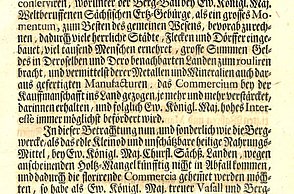 conserviren, worunter der Berg-Bau bey Ew. Königl. Maj.
Weltberuffenen Sächsischen Ertz-Gebürge, als ein grosses Mo-
mentum, zum Besten des gemeinen Wesens, bevorab zu rech-
nen, dadurch viele herrliche Städte, Flecken und Dörffer einge-
bauet, viel tausend Menschen ernehret, grosse Summen Gel-
des in Deroselben und Dero benachbarten Landen zum rouliren
bracht, und vermittelst derer Metallen und Mineralien auch dar-
aus gefertigten Manufacturen, das Commercium bey der
Kauffmanschafft in Land gezogen, je mehr und mehr verstärcket,
darinnen erhalten, und folglich Ew. Königl. Maj. hohes Inter-
esse immer möglichst befördert wird.
In dieser Betrachtung nun, und sonderlich wie die Berg-
wercke, als das edle Kleinod und unschätzbare heilige Nahrungs-
Mittel, bey Ew. Königl. Maj. Churfl. Sächß. Landen, wegen
anscheinenden Holtz-Mangel künfftig nicht in Abfall kommen,
und dadurch die florirende Commercia gehemmet werden möch-
ten, so habe als Ew. Königl. Maj. treuer Vasall und Berg-